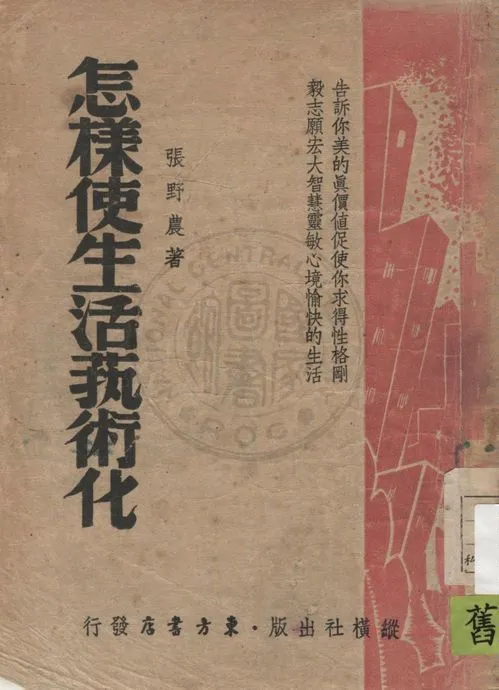 告訴你美的眞價値促使你求得性格剛
毅志願宏大智慧靈敏心境愉快的生活
張野農著
怎樣使生活藝術化
縱橫社出版・東方書店發行
CENTRAL
圖
書
舊